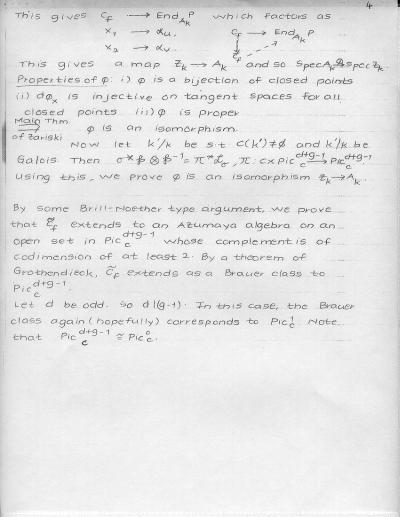 4
This gives C_f → End_{A_k} P which factors as
x_1 → α_u. C_f → End_{A_k} P
x_2 → α_v. Z_k
This gives a map Z_k → A_k and so Spec A_k →^φ Spec Z_k
Properties of φ: i) φ is a bijection of closed points
ii) dφ_x is injective on tangent spaces for all
closed points iii) φ is proper
Main Thm ⟹ of Zariski φ is an isomorphism.
Now let k'/k be s.t C(k') ≠ ∅ and k'/k be
Galois. Then σ* ⊗ ^{-1} = π* _σ, π: C × Pic_C^{d+g-1} → Pic_C^{d+g-1}
using this, we prove φ is an isomorphism Z_k → A_k.
By some Brill-Noether type argument, we prove
that C̃_f extends to an Azumaya algebra on an
open set in Pic_C^{d+g-1} whose complement is of
codimension of at least 2. By a theorem of
Grothendieck, C̃_f extends as a Brauer class to
Pic_C^{d+g-1}.
Let d be odd. so d | (g-1). In this case, the Brauer
class again (hopefully) corresponds to Pic_C^1. Note
that Pic_C^{d+g-1} ≅ Pic_C^0.